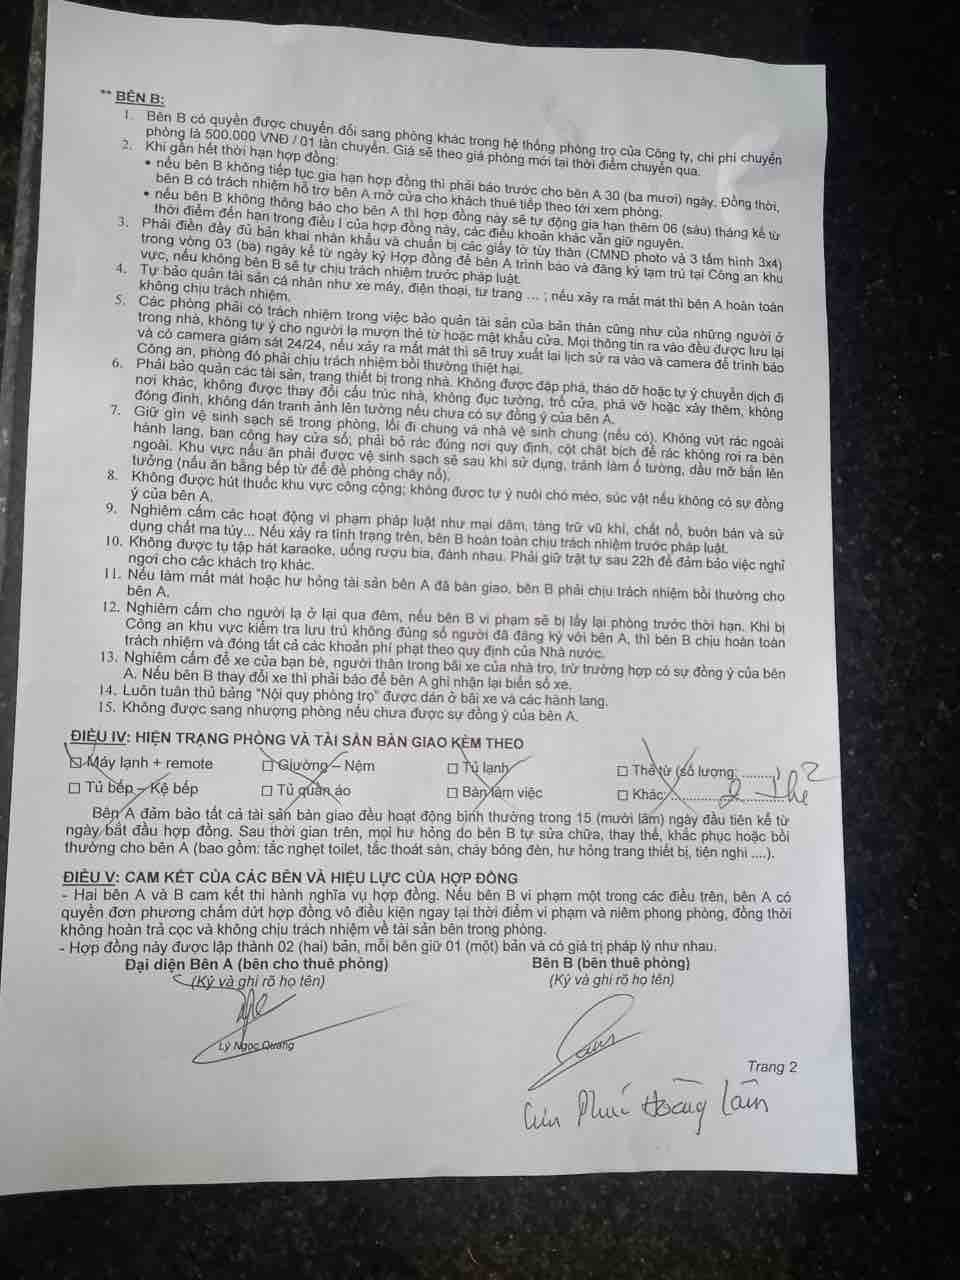 ** BÊN B:
1. Bên B có quyền được chuyển đổi sang phòng khác trong hệ thống phòng trọ của Công ty, chi phí chuyển
phòng là 500.000 VNĐ / 01 lần chuyển. Giá sẽ theo giá phòng mới tại thời điểm chuyển qua.
2. Khi gần hết thời hạn hợp đồng:
• nếu bên B không tiếp tục gia hạn hợp đồng thì phải báo trước cho bên A 30 (ba mươi) ngày. Đồng thời,
bên B có trách nhiệm hỗ trợ bên A mở cửa cho khách thuê tiếp theo tới xem phòng.
• nếu bên B không thông báo cho bên A thì hợp đồng này sẽ tự động gia hạn thêm 06 (sáu) tháng kể từ
thời điểm đến hạn trong điều I của hợp đồng này, các điều khoản khác vẫn giữ nguyên.
3. Phải điền đầy đủ bản khai nhân khẩu và chuẩn bị các giấy tờ tùy thân (CMND photo và 3 tấm hình 3x4)
trong vòng 03 (ba) ngày kể từ ngày ký Hợp đồng để bên A trình báo và đăng ký tạm trú tại Công an khu
vực, nếu không bên B sẽ tự chịu trách nhiệm trước pháp luật.
4. Tự bảo quản tài sản cá nhân như xe máy, điện thoại, tư trang ... ; nếu xảy ra mất mát thì bên A hoàn toàn
không chịu trách nhiệm.
5. Các phòng phải có trách nhiệm trong việc bảo quản tài sản của bản thân cũng như của những người ở
trong nhà, không tự ý cho người lạ mượn thẻ từ hoặc mật khẩu cửa. Mọi thông tin ra vào đều được lưu lại
và có camera giám sát 24/24, nếu xảy ra mất mát thì sẽ truy xuất lại lịch sử ra vào và camera để trình báo
Công an, phòng đó phải chịu trách nhiệm bồi thường thiệt hại.
6. Phải bảo quản các tài sản, trang thiết bị trong nhà. Không được đập phá, tháo dỡ hoặc tự ý chuyển dịch đi
nơi khác, không được thay đổi cấu trúc nhà, không đục tường, trổ cửa, phá vỡ hoặc xây thêm, không
đóng đinh, không dán tranh ảnh lên tường nếu chưa có sự đồng ý của bên A.
7. Giữ gìn vệ sinh sạch sẽ trong phòng, lối đi chung và nhà vệ sinh chung (nếu có). Không vứt rác ngoài
hành lang, ban công hay cửa sổ; phải bỏ rác đúng nơi quy định, cột chặt bịch để rác không rơi ra bên
ngoài. Khu vực nấu ăn phải được vệ sinh sạch sẽ sau khi sử dụng, tránh làm ố tường, dầu mỡ bẩn lên
tường (nấu ăn bằng bếp từ để đề phòng cháy nổ).
8. Không được hút thuốc khu vực công cộng; không được tự ý nuôi chó mèo, súc vật nếu không có sự đồng
ý của bên A.
9. Nghiêm cấm các hoạt động vi phạm pháp luật như mại dâm, tàng trữ vũ khí, chất nổ, buôn bán và sử
dụng chất ma túy... Nếu xảy ra tình trạng trên, bên B hoàn toàn chịu trách nhiệm trước pháp luật.
10. Không được tụ tập hát karaoke, uống rượu bia, đánh nhau. Phải giữ trật tự sau 22h để đảm bảo việc nghỉ
ngơi cho các khách trọ khác.
11. Nếu làm mất mát hoặc hư hỏng tài sản bên A đã bàn giao, bên B phải chịu trách nhiệm bồi thường cho
bên A.
12. Nghiêm cấm cho người lạ ở lại qua đêm, nếu bên B vi phạm sẽ bị lấy lại phòng trước thời hạn. Khi bị
Công an khu vực kiểm tra lưu trú không đúng số người đã đăng ký với bên A, thì bên B chịu hoàn toàn
trách nhiệm và đóng tất cả các khoản phí phạt theo quy định của Nhà nước.
13. Nghiêm cấm để xe của bạn bè, người thân trong bãi xe của nhà trọ, trừ trường hợp có sự đồng ý của bên
A. Nếu bên B thay đổi xe thì phải báo để bên A ghi nhận lại biển số xe.
14. Luôn tuân thủ bảng "Nội quy phòng trọ" được dán ở bãi xe và các hành lang.
15. Không được sang nhượng phòng nếu chưa được sự đồng ý của bên A.
ĐIỀU IV: HIỆN TRẠNG PHÒNG VÀ TÀI SẢN BÀN GIAO KÈM THEO
☐ Máy lạnh + remote ☐ Giường – Nệm ☐ Tủ lạnh ☐ Thẻ từ (số lượng: ........)
☐ Tủ bếp – Kệ bếp ☐ Tủ quần áo ☐ Bàn làm việc ☐ Khác: ........ 2 thẻ
Bên A đảm bảo tất cả tài sản bàn giao đều hoạt động bình thường trong 15 (mười lăm) ngày đầu tiên kể từ
ngày bắt đầu hợp đồng. Sau thời gian trên, mọi hư hỏng do bên B tự sửa chữa, thay thế, khắc phục hoặc bồi
thường cho bên A (bao gồm: tắc nghẹt toilet, tắc thoát sàn, cháy bóng đèn, hư hỏng trang thiết bị, tiện nghi ....).
ĐIỀU V: CAM KẾT CỦA CÁC BÊN VÀ HIỆU LỰC CỦA HỢP ĐỒNG
- Hai bên A và B cam kết thi hành nghĩa vụ hợp đồng. Nếu bên B vi phạm một trong các điều trên, bên A có
quyền đơn phương chấm dứt hợp đồng vô điều kiện ngay tại thời điểm vi phạm và niêm phong phòng, đồng thời
không hoàn trả cọc và không chịu trách nhiệm về tài sản bên trong phòng.
- Hợp đồng này được lập thành 02 (hai) bản, mỗi bên giữ 01 (một) bản và có giá trị pháp lý như nhau.
Đại diện Bên A (bên cho thuê phòng) Bên B (bên thuê phòng)
(Ký và ghi rõ họ tên) (Ký và ghi rõ họ tên)
Lý Ngọc Quang
Trang 2
Phú Hoàng Lâm